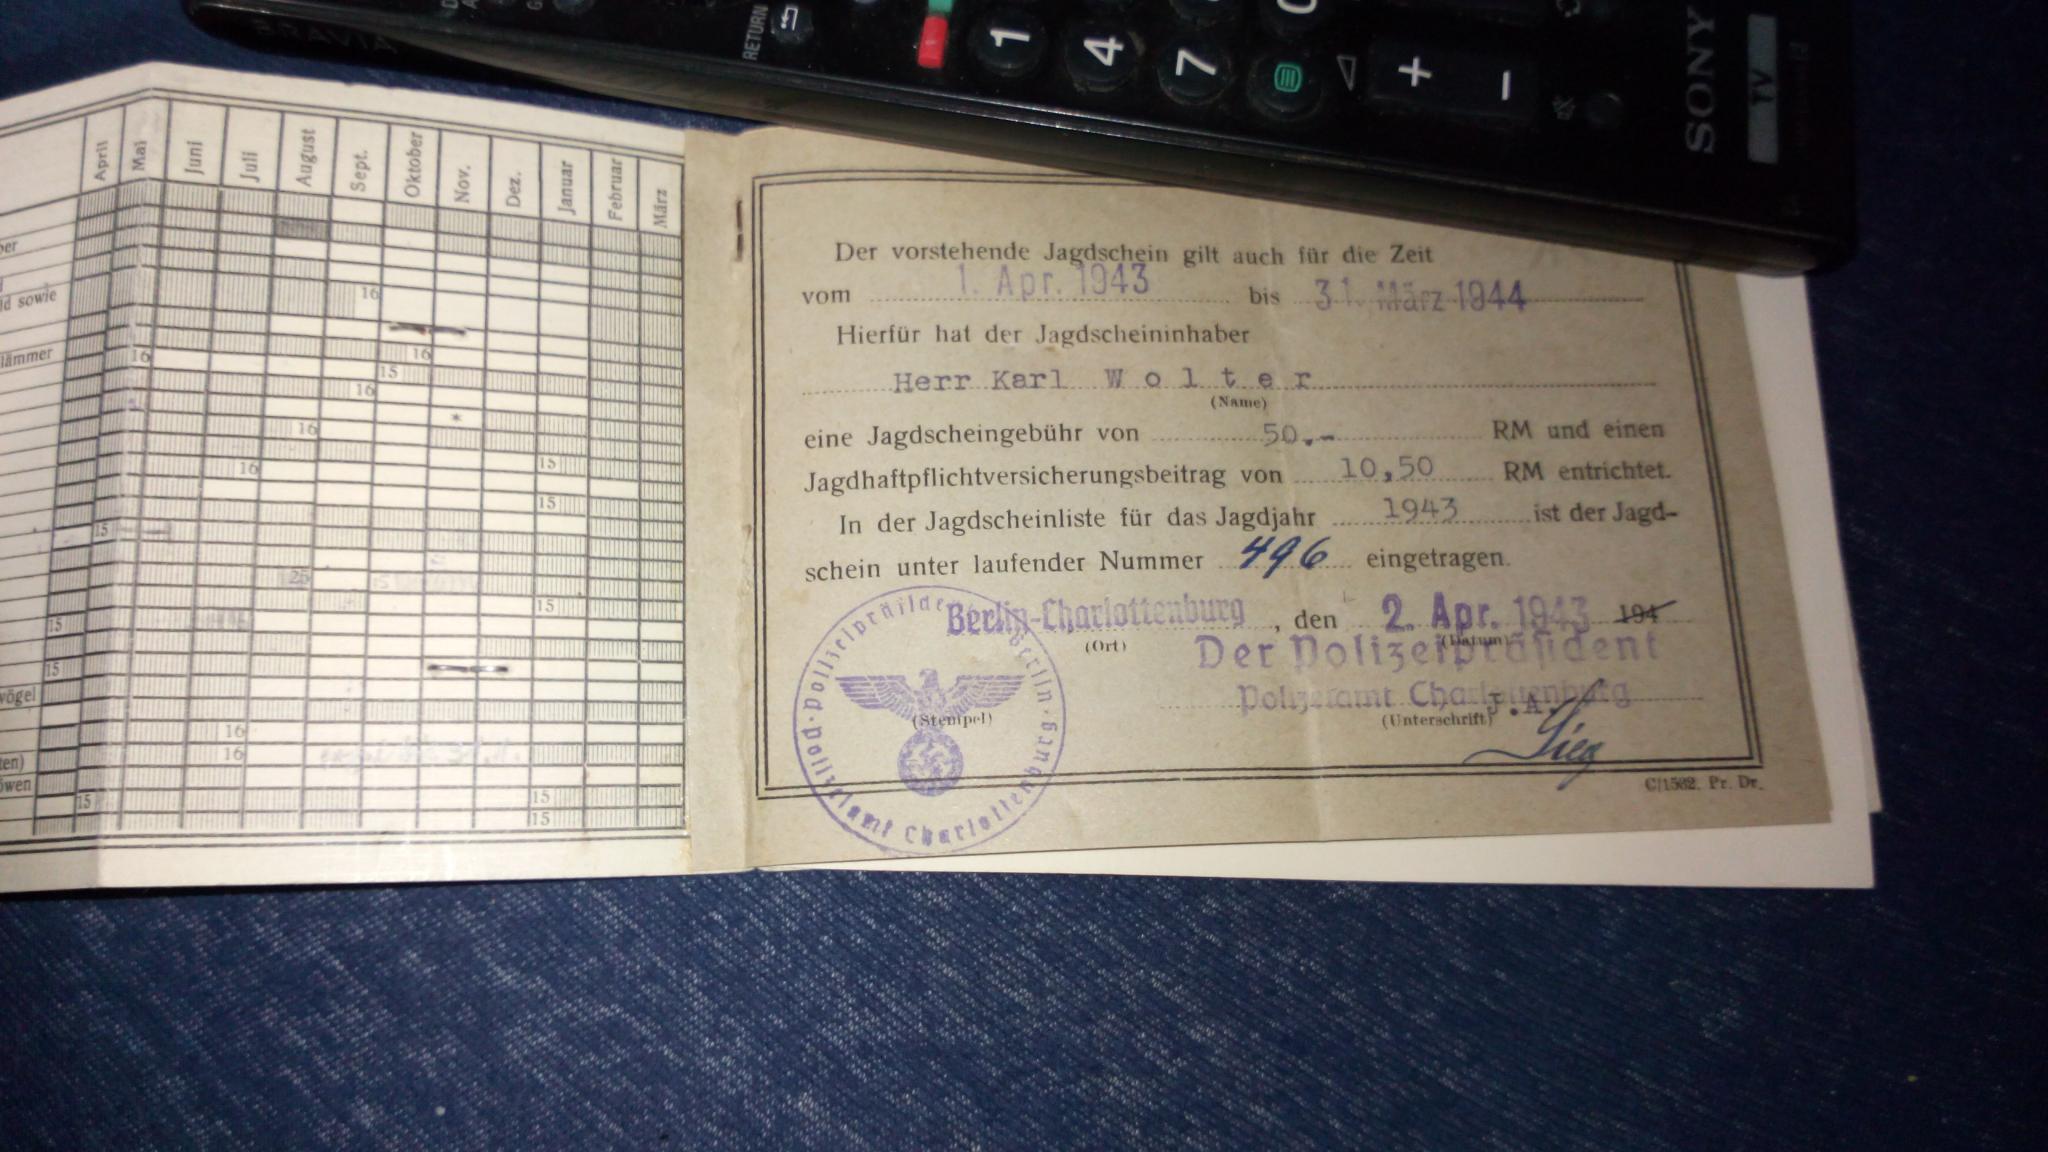 BRAVIA
RETURN
1
4
7
+
−
SONY
TV
April
Mai
Juni
Juli
August
Sept.
Oktober
Nov.
Dez.
Januar
Februar
März
ber
16
ld sowie
lämmer
16
16
15
16
*
16
15
16
15
15
25
15
15
15
vögel
16
16
ten)
öwen
15
15
15
Der vorstehende Jagdschein gilt auch für die Zeit
vom 1. Apr. 1943 bis 31. März 1944
Hierfür hat der Jagdscheininhaber
Herr Karl Wolter
(Name)
eine Jagdscheingebühr von 50.- RM und einen
Jagdhaftpflichtversicherungsbeitrag von 10,50 RM entrichtet.
In der Jagdscheinliste für das Jagdjahr 1943 ist der Jagd-
schein unter laufender Nummer 496 eingetragen.
Berlin-Charlottenburg, den 2. Apr. 1943 194
(Ort) (Datum)
Der Polizeipräsident
Polizeiamt Charlottenburg
(Stempel) (Unterschrift) J.A.
Polizeipräsident Berlin
Polizeiamt Charlottenburg
C/1582. Pr. Dr.